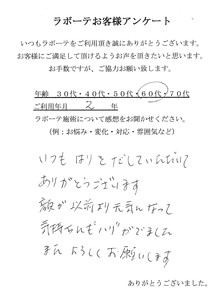 ラポーテお客様アンケート
いつもラポーテをご利用頂き誠にありがとうございます。
お客様にご満足して頂けるようお声を頂きたいと思います。
お手数ですが、ご協力お願い致します。
年齢 30代・40代・50代・60代・70代
ご利用年月 2 年
ラポーテ施術について感想をお聞かせください。
(例：お悩み・変化・対応・雰囲気など)
いつもはりをだしていただいて
ありがとうございます
顔が以前より元気になって
気持ちにもハリがでました
またよろしくお願いします
ありがとうございました。